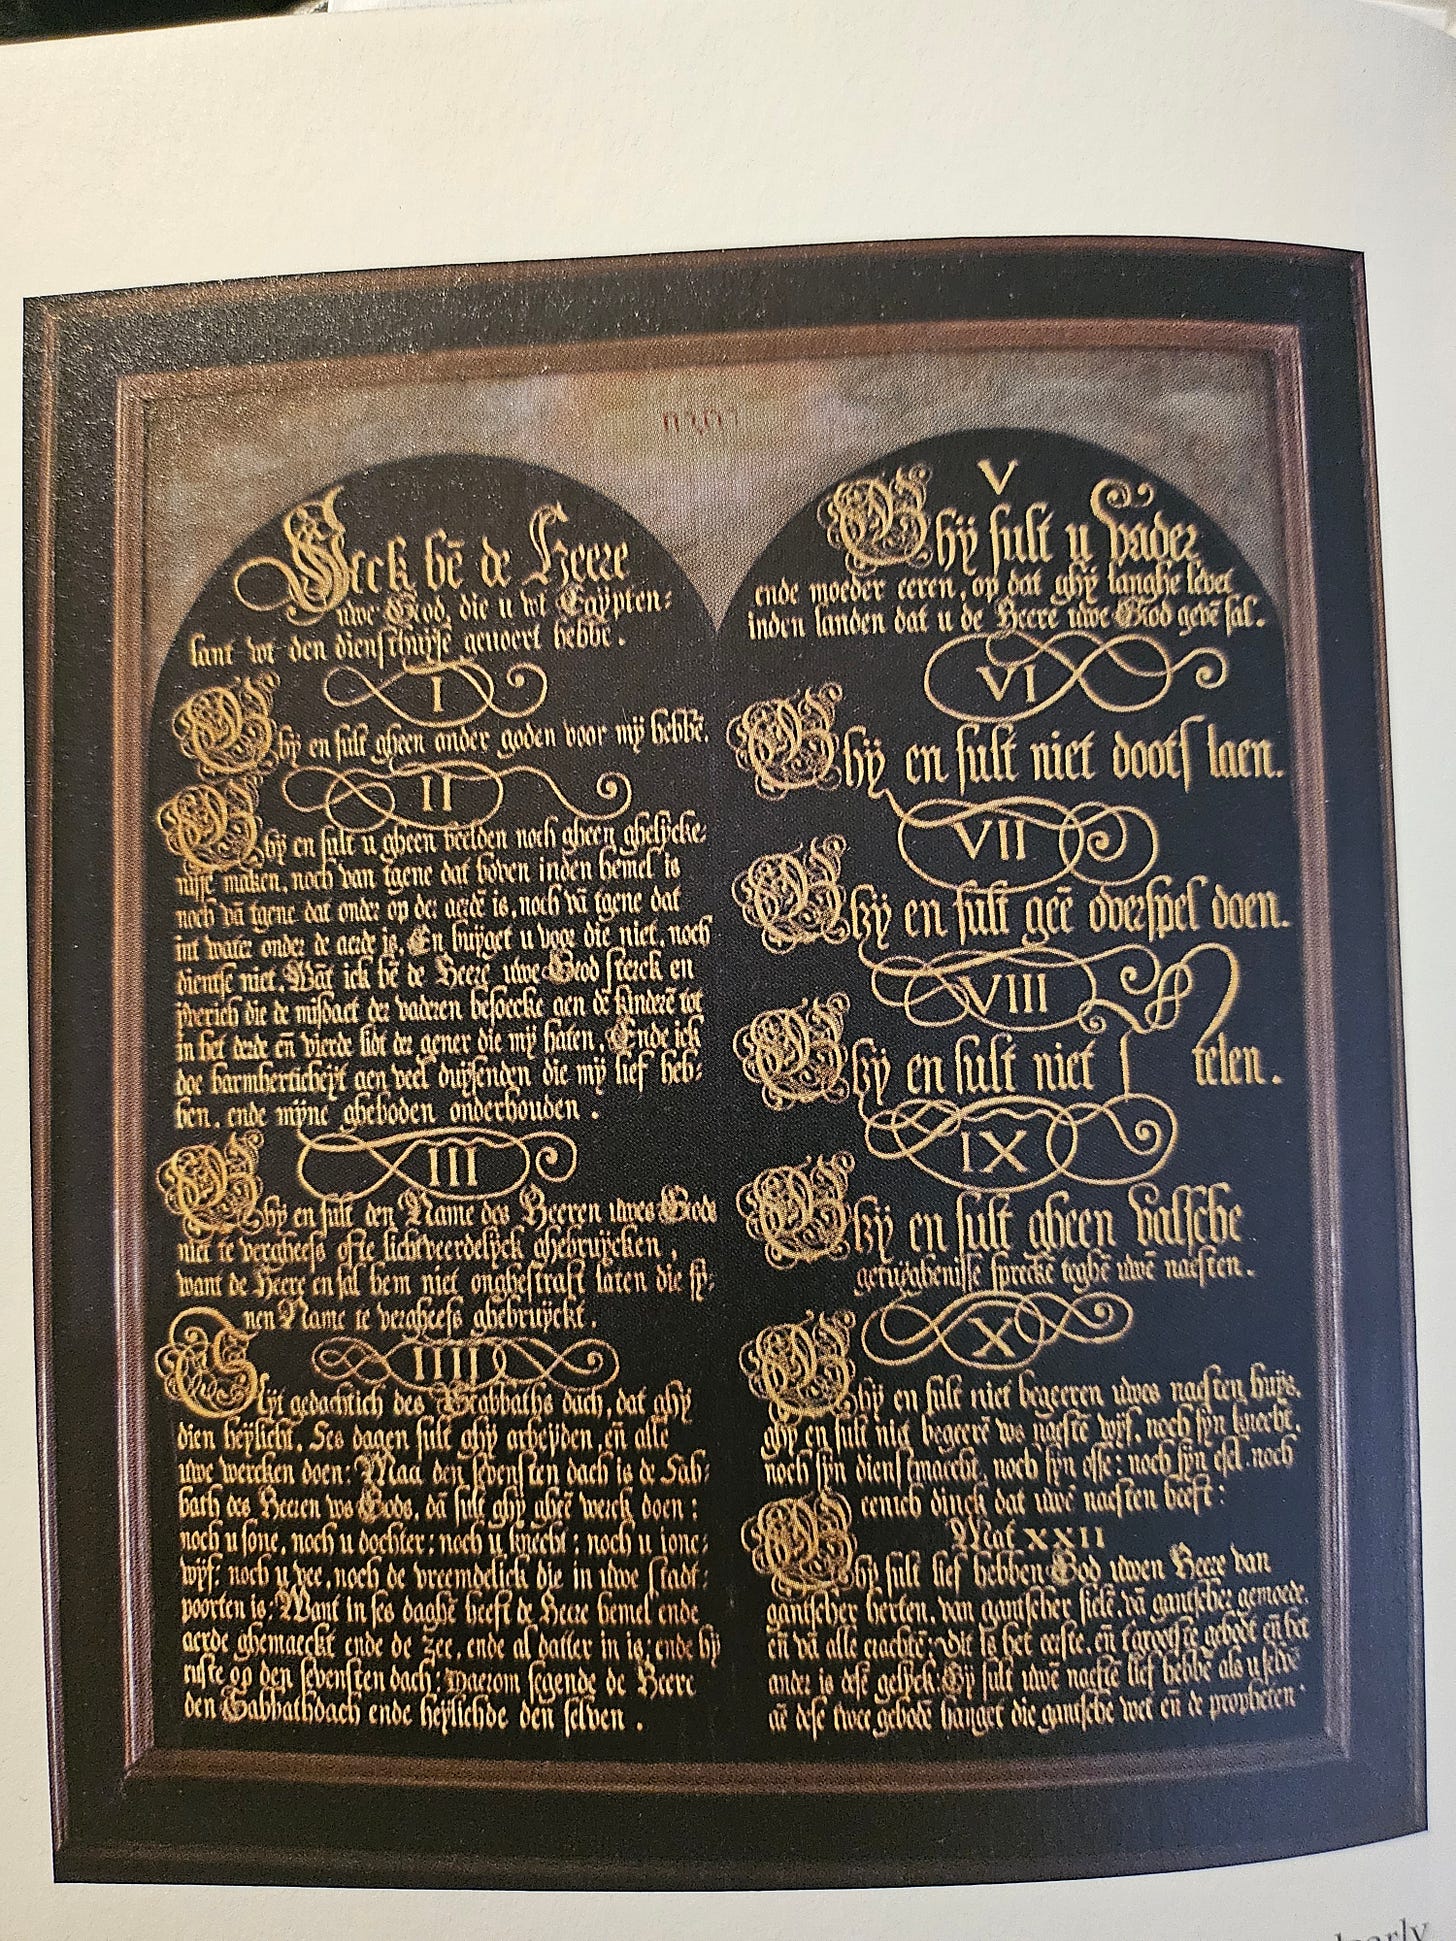 Ick bē de Heere
uwe God, die u wt Egÿpten:
lant wt den diensthuÿse gevoert hebbe.
I
Ghÿ en sult gheen ander goden voor mÿ hebbē.
II
Ghÿ en sult u gheen beelden noch gheen ghelÿcke:
nisse maken, noch van tgene dat boven inden hemel is
noch vā tgene dat onder op der aerdē is, noch vā tgene dat
int water onder de aerde is, En buÿget u voor die niet, noch
dientse niet. Wāt ick bē de Heere uwe God sterck en
die de misdaet der vaderen besoecke aen de kinderē tot
in het derde eñ vierde lidt der gener die mÿ haten, Ende ick
doe barmherticheÿt aen veel duÿsenden die mÿ lief heb:
ben, ende mÿne gheboden onderhouden .
III
Ghÿ en sult den Name des Heeren uwes Gods
niet te vergheefs ofte lichtveerdelÿck ghebruÿcken ,
want de Heere en sal hem niet onghestraft laten die sÿ:
nen Name te vergheefs ghebruÿckt .
IIII
Sÿt gedachtich des Sabbaths dach, dat ghÿ
dien heÿlicht. Ses dagen sult ghÿ arbeÿden, eñ alle
uwe wercken doen: Maer den sevensten dach is de Sab:
bath des Heeren ws Gods, dā sult ghÿ gheē werck doen:
noch u sone, noch u dochter: noch u knecht: noch u ionc:
wÿf: noch u vee, noch de vreemdelick die in uwe stadt:
poorten is: Want in ses daghē heeft de Heere hemel ende
aerde ghemaeckt ende de zee, ende al datter in is: ende hÿ
ruste op den sevensten dach: Daerom segende de Heere
den Sabbathdach ende heÿlichde den selven .
V
Ghÿ sult u Vader
ende moeder eeren, op dat ghÿ langhe levet
inden landen dat u de Heere uwe God gevē sal.
VI
Ghÿ en sult niet doots laen.
VII
Ghÿ en sult geē overspel doen.
VIII
Ghÿ en sult niet stelen.
IX
Ghÿ en sult gheen valsche
getuÿghenisse sprekē teghē uwē naesten.
X
Ghÿ en sult niet begeeren uwes naesten huÿs,
ghÿ en sult niet begeerē ws naestē wÿf, noch sÿn knecht,
noch sÿn dienstmaecht, noch sÿn osse: noch sÿn esel. noch
eenich dinck dat uwē naesten heeft:
Mat XXII
Ghÿ sult lief hebben God uwen Heere van
gantscher herten, van gantscher sielē, vā gantscher gemoede,
eñ vā alle crachtē: dit is het eerste, eñ tgrootste gebodt eñ het
ander is dese gelÿck: Ghÿ sult uwē naestē lief hebbē als u selvē
aē dese twee gebodē hanget die gantsche wet eñ de propheten